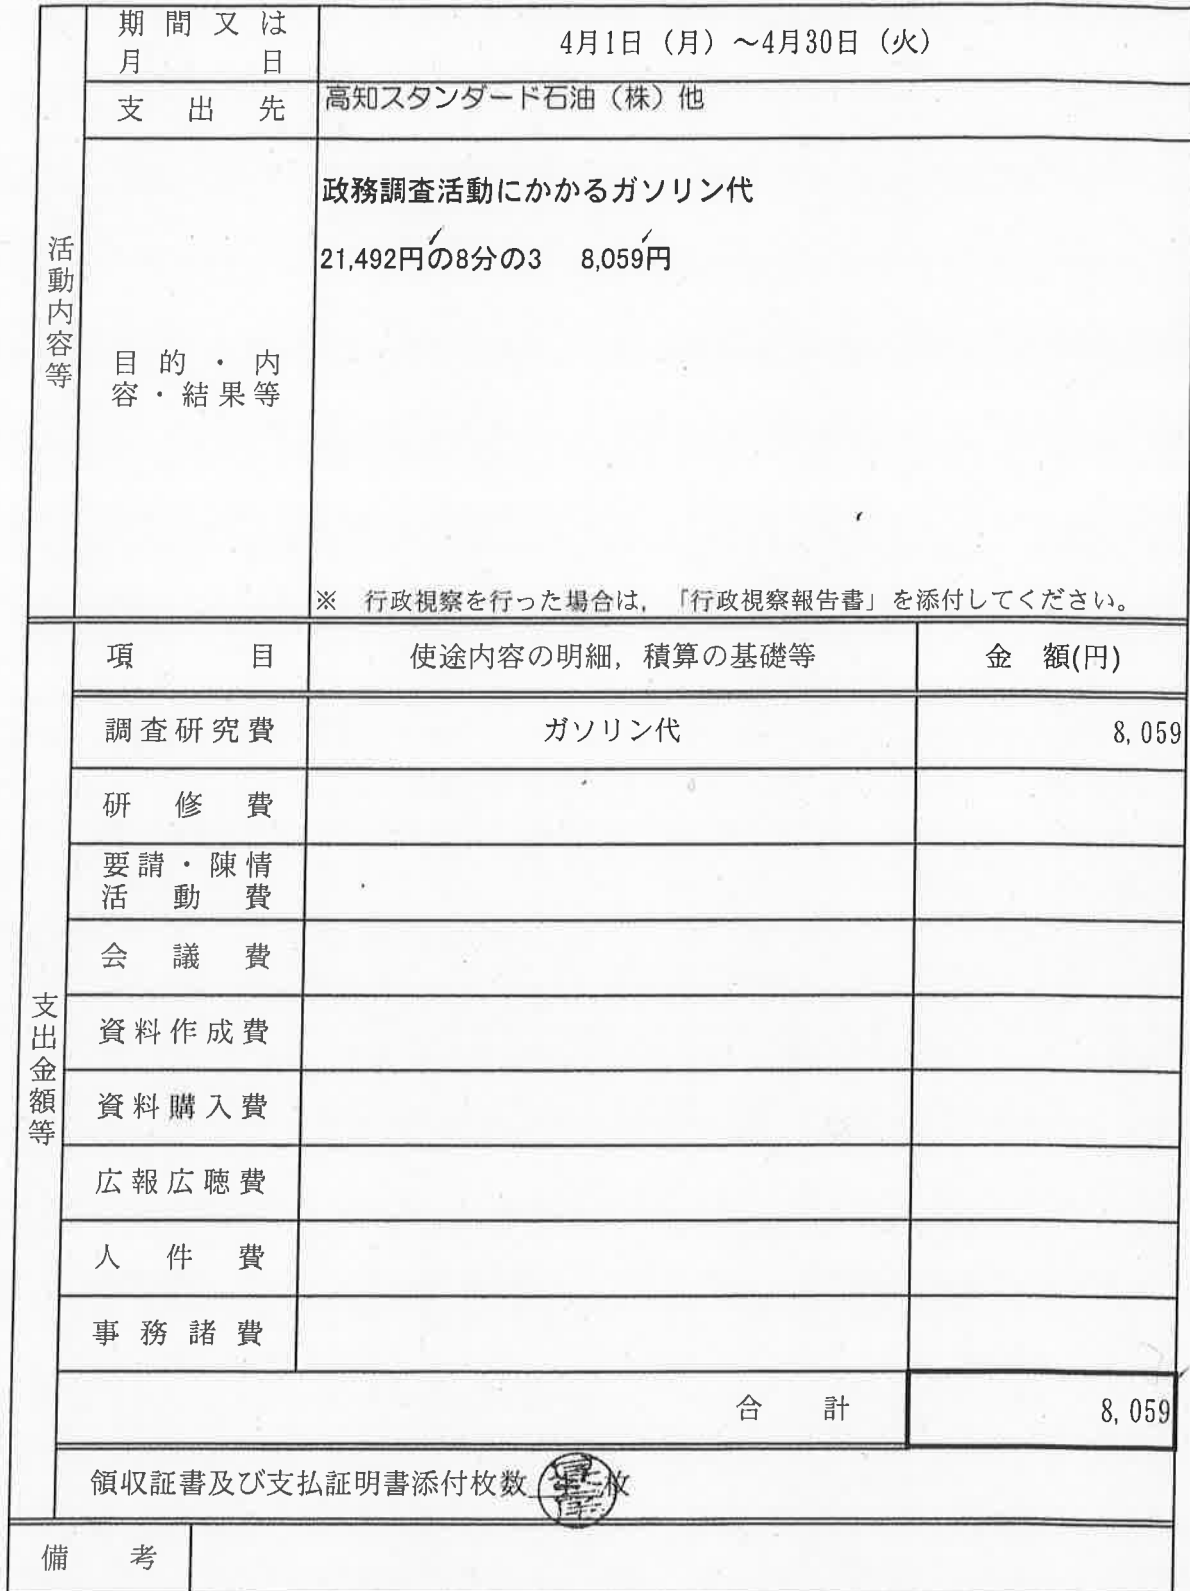 期間又は
月日
4月1日（月）～4月30日（火）
支出先
高知スタンダード石油（株）他
活動内容等
目的・内
容・結果等
政務調査活動にかかるガソリン代
21,492円の8分の3　8,059円
※　行政視察を行った場合は，「行政視察報告書」を添付してください。
支出金額等
項目　使途内容の明細，積算の基礎等　金　額(円)
調査研究費　ガソリン代　8,059
研修費
要請・陳情
活動費
会議費
資料作成費
資料購入費
広報広聴費
人件費
事務諸費
合計　8,059
領収証書及び支払証明書添付枚数　枚
備考